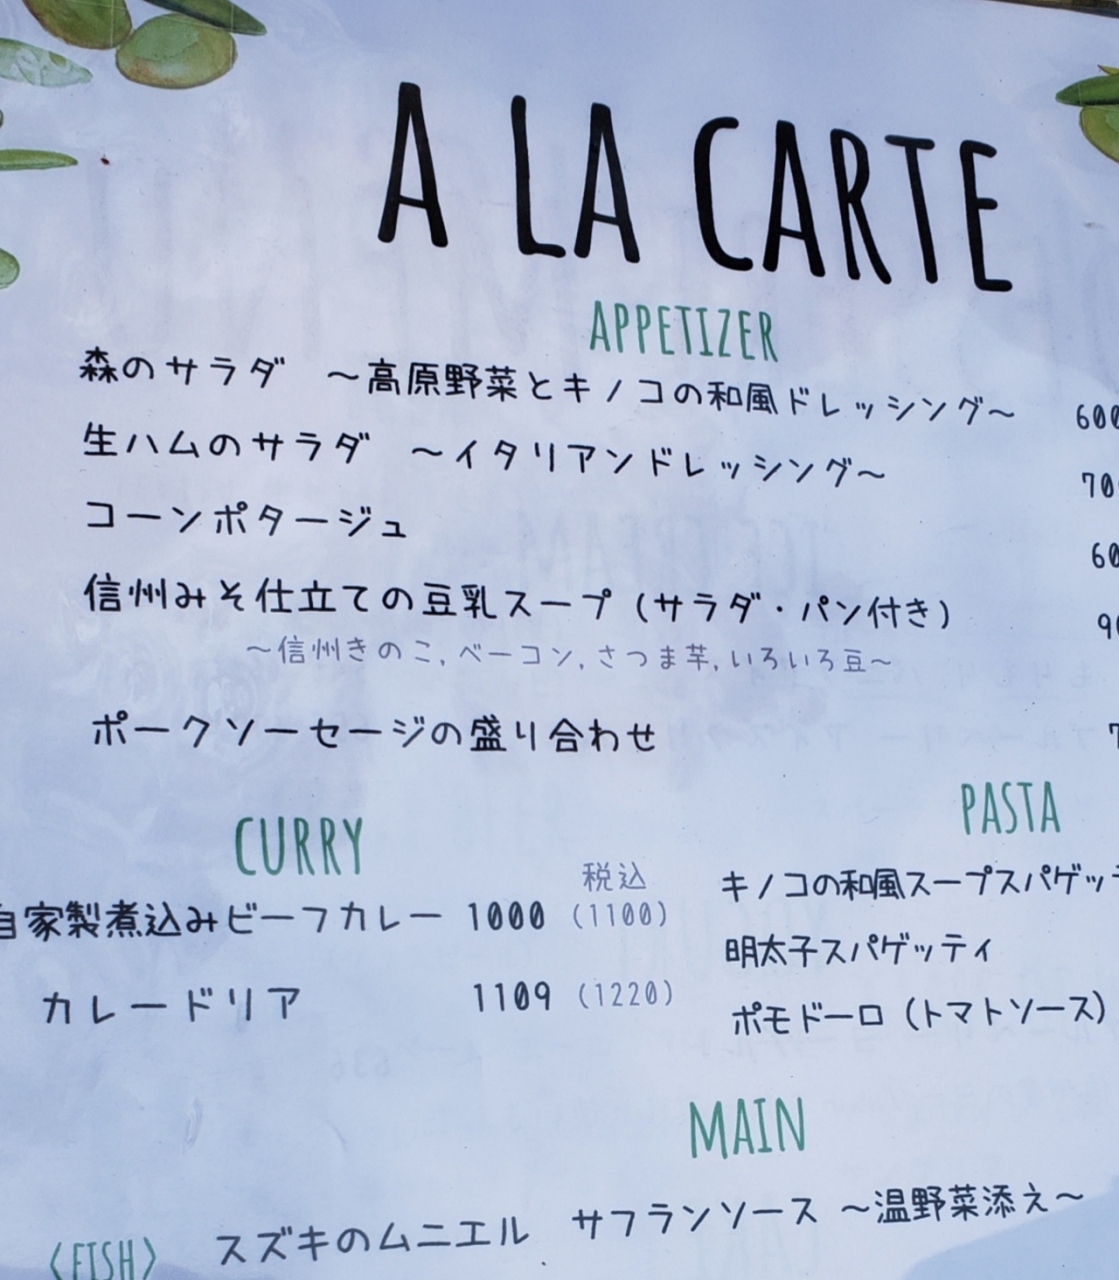 A LA CARTE
APPETIZER
森のサラダ ～高原野菜とキノコの和風ドレッシング～ 600
生ハムのサラダ ～イタリアンドレッシング～ 70
コーンポタージュ 60
信州みそ仕立ての豆乳スープ (サラダ・パン付き) 90
～信州きのこ, ベーコン, さつま芋, いろいろ豆～
ポークソーセージの盛り合わせ 7
CURRY
税込
自家製煮込みビーフカレー 1000 (1100)
カレードリア 1109 (1220)
PASTA
キノコの和風スープスパゲッ
明太子スパゲッティ
ポモドーロ (トマトソース)
MAIN
<FISH> スズキのムニエル サフランソース ～温野菜添え～